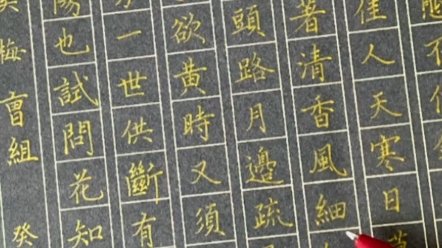 態不
佳人天寒日
著清香風細
頭路月邊疏
欲黃時又須
一世供斷有
陽也試問花知
梅 曹組 癸